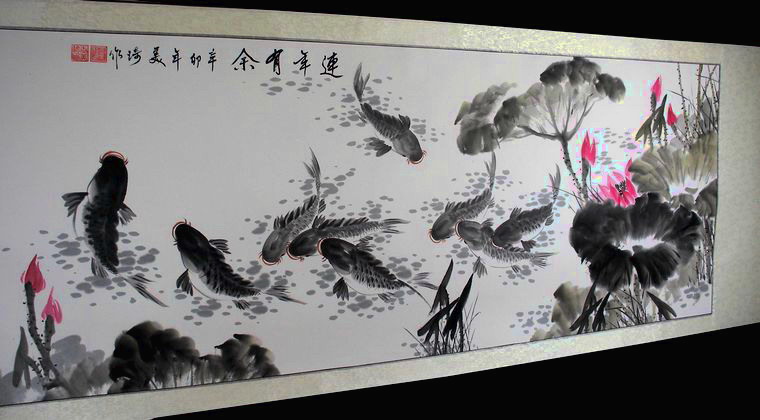 連年有余 辛卯年美琦作